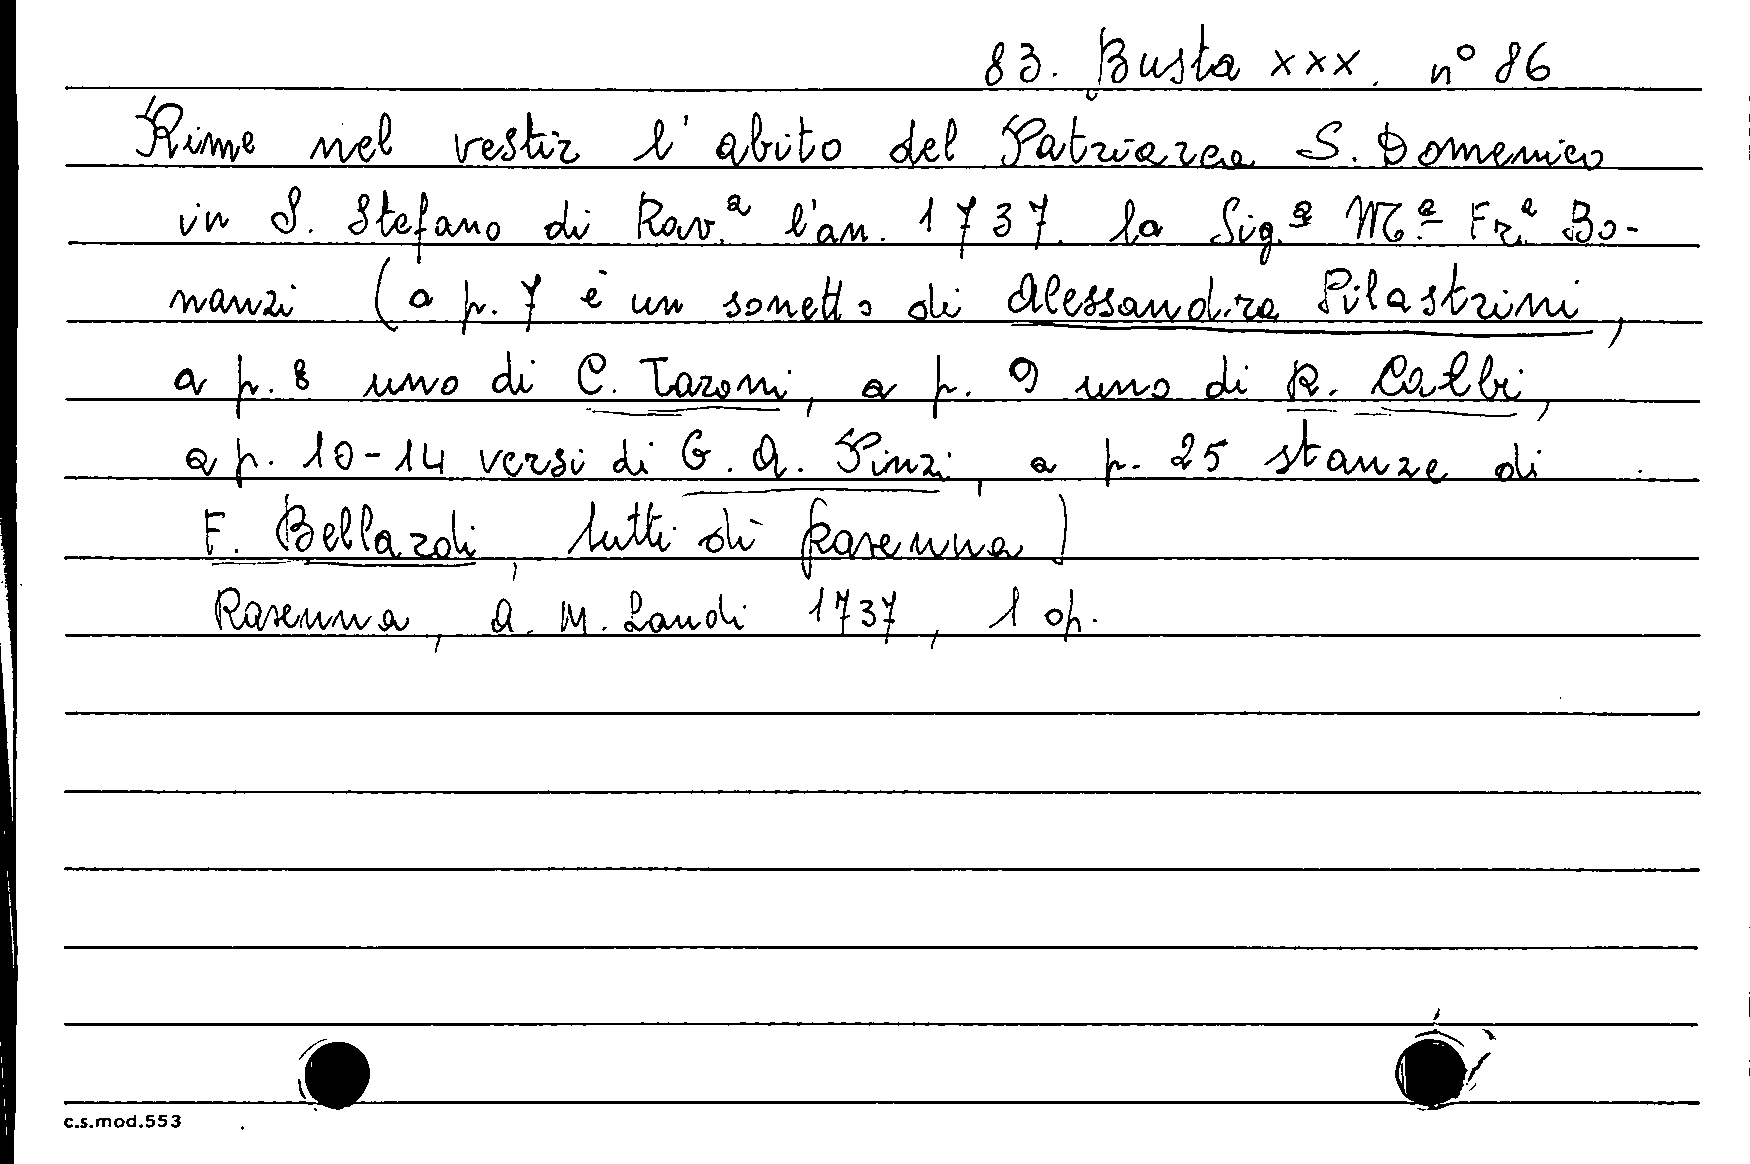 83. Busta XXX. n° 86
Rime nel vestir l'abito del Patriarca S. Domenico
in S. Stefano di Rav.ª l'an. 1737. la Sig.ª Mª Fr.ª Bo-
nanzi (a p. 7 è un sonetto di Alessandra Pilastrini,
a p. 8 uno di C. Tazoni, a p. 9 uno di R. Calbi,
a p. 10-14 versi di G. A. Pinzi, a p. 25 stanze di
F. Bellardi, tutti di Ravenna)
Ravenna, A. M. Landi 1737, 1 op.
c.s.mod.553